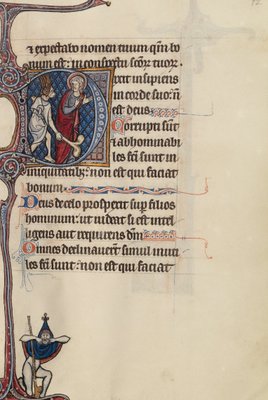 & expectabo nomen tuum qm̄ bo
num est: in conspectu scōr̄ tuor̄.
Dixit insipiens
in corde suo: nō
est deus.
Corrupti sūt
& abhominabi
les fc̄i sunt in
iniquitatib;: non est qui faciat
bonum
Deus de celo prospexit sup̄ filios
hominum: ut uideat si est intel
ligens aut requirens dm̄
Omnes declinauerunt simul inuti
les fc̄i sunt: non est qui faciat